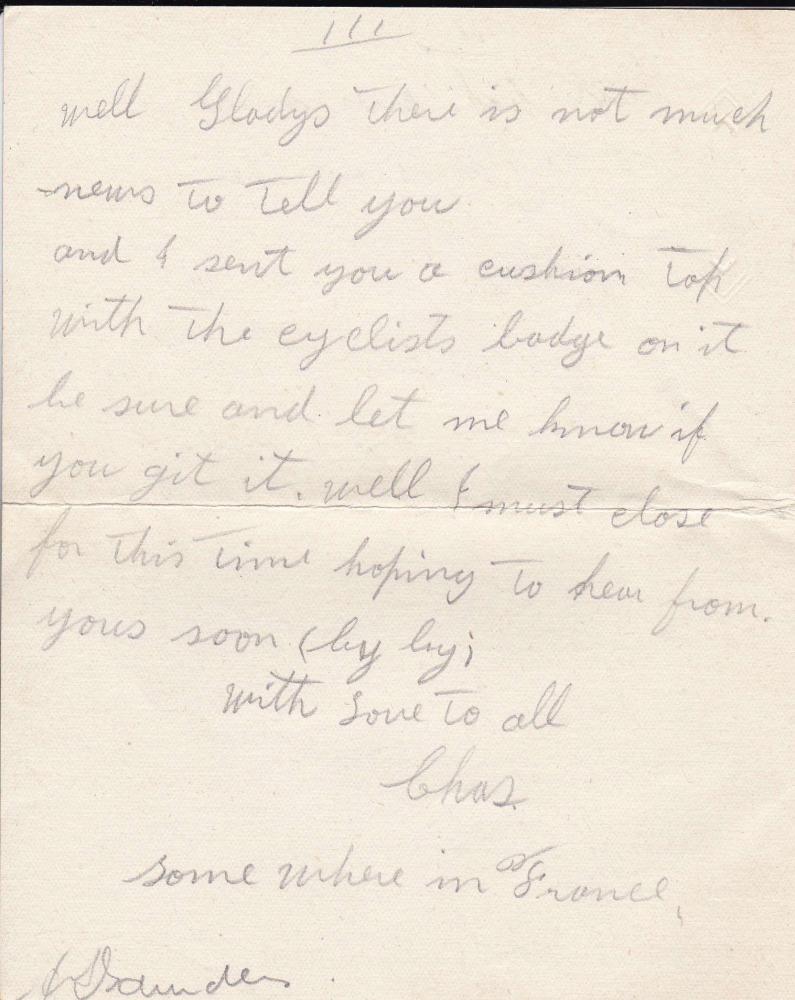 III
well Gladys there is not much
news to tell you
and I sent you a cushion top
with the cyclists badge on it
be sure and let me know if
you git it. well I must close
for this time hoping to hear from.
yous soon (by by)
with love to all
Chas.
some where in France,
Saunders